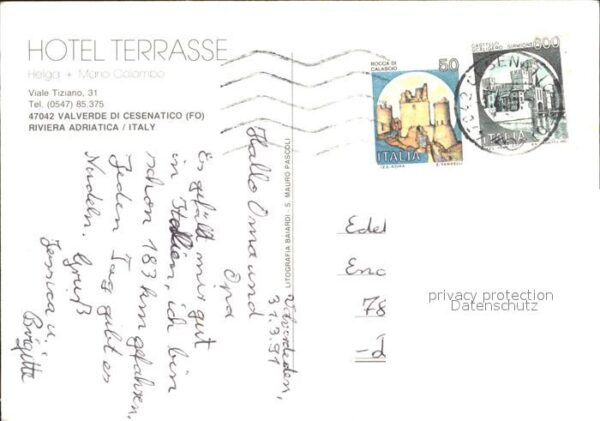 HOTEL TERRASSE
Helga + Mario Colombo
Viale Tiziano, 31
Tel. (0547) 85.375
47042 VALVERDE DI CESENATICO (FO)
RIVIERA ADRIATICA / ITALY
LITOGRAFIA BAIARDI - S. MAURO PASCOLI
ROCCA DI
CALASCIO
50
ITALIA
CASTELLO
SCALIGERO SIRMIONE
600
ITALIA
31.3.91
Hallo Oma und
Opa
Es gefällt mir gut
in Italien, ich bin
schon 183 km gefahren,
Jeden Tag gibt es
Nudeln. Gruß
Jessica u.
Brigitte
Edel
Enc
78
privacy protection
Datenschutz